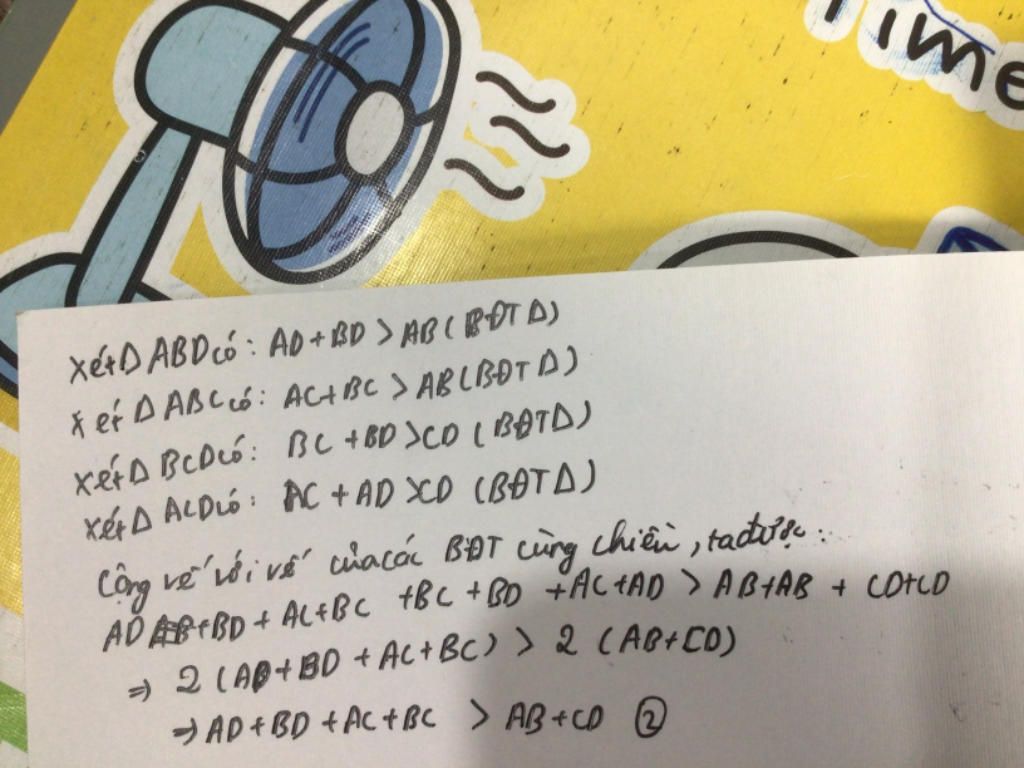 Time
Xét Δ ABD có: AD + BD > AB (BĐT Δ)
Xét Δ ABC có: AC + BC > AB (BĐT Δ)
Xét Δ BCD có: BC + BD > CD (BĐT Δ)
Xét Δ ACD có: AC + AD > CD (BĐT Δ)
Cộng vế với vế của các BĐT cùng chiều, ta được:
AD + BD + AC + BC + BC + BD + AC + AD > AB + AB + CD + CD
⇒ 2 (AD + BD + AC + BC) > 2 (AB + CD)
⇒ AD + BD + AC + BC > AB + CD ②